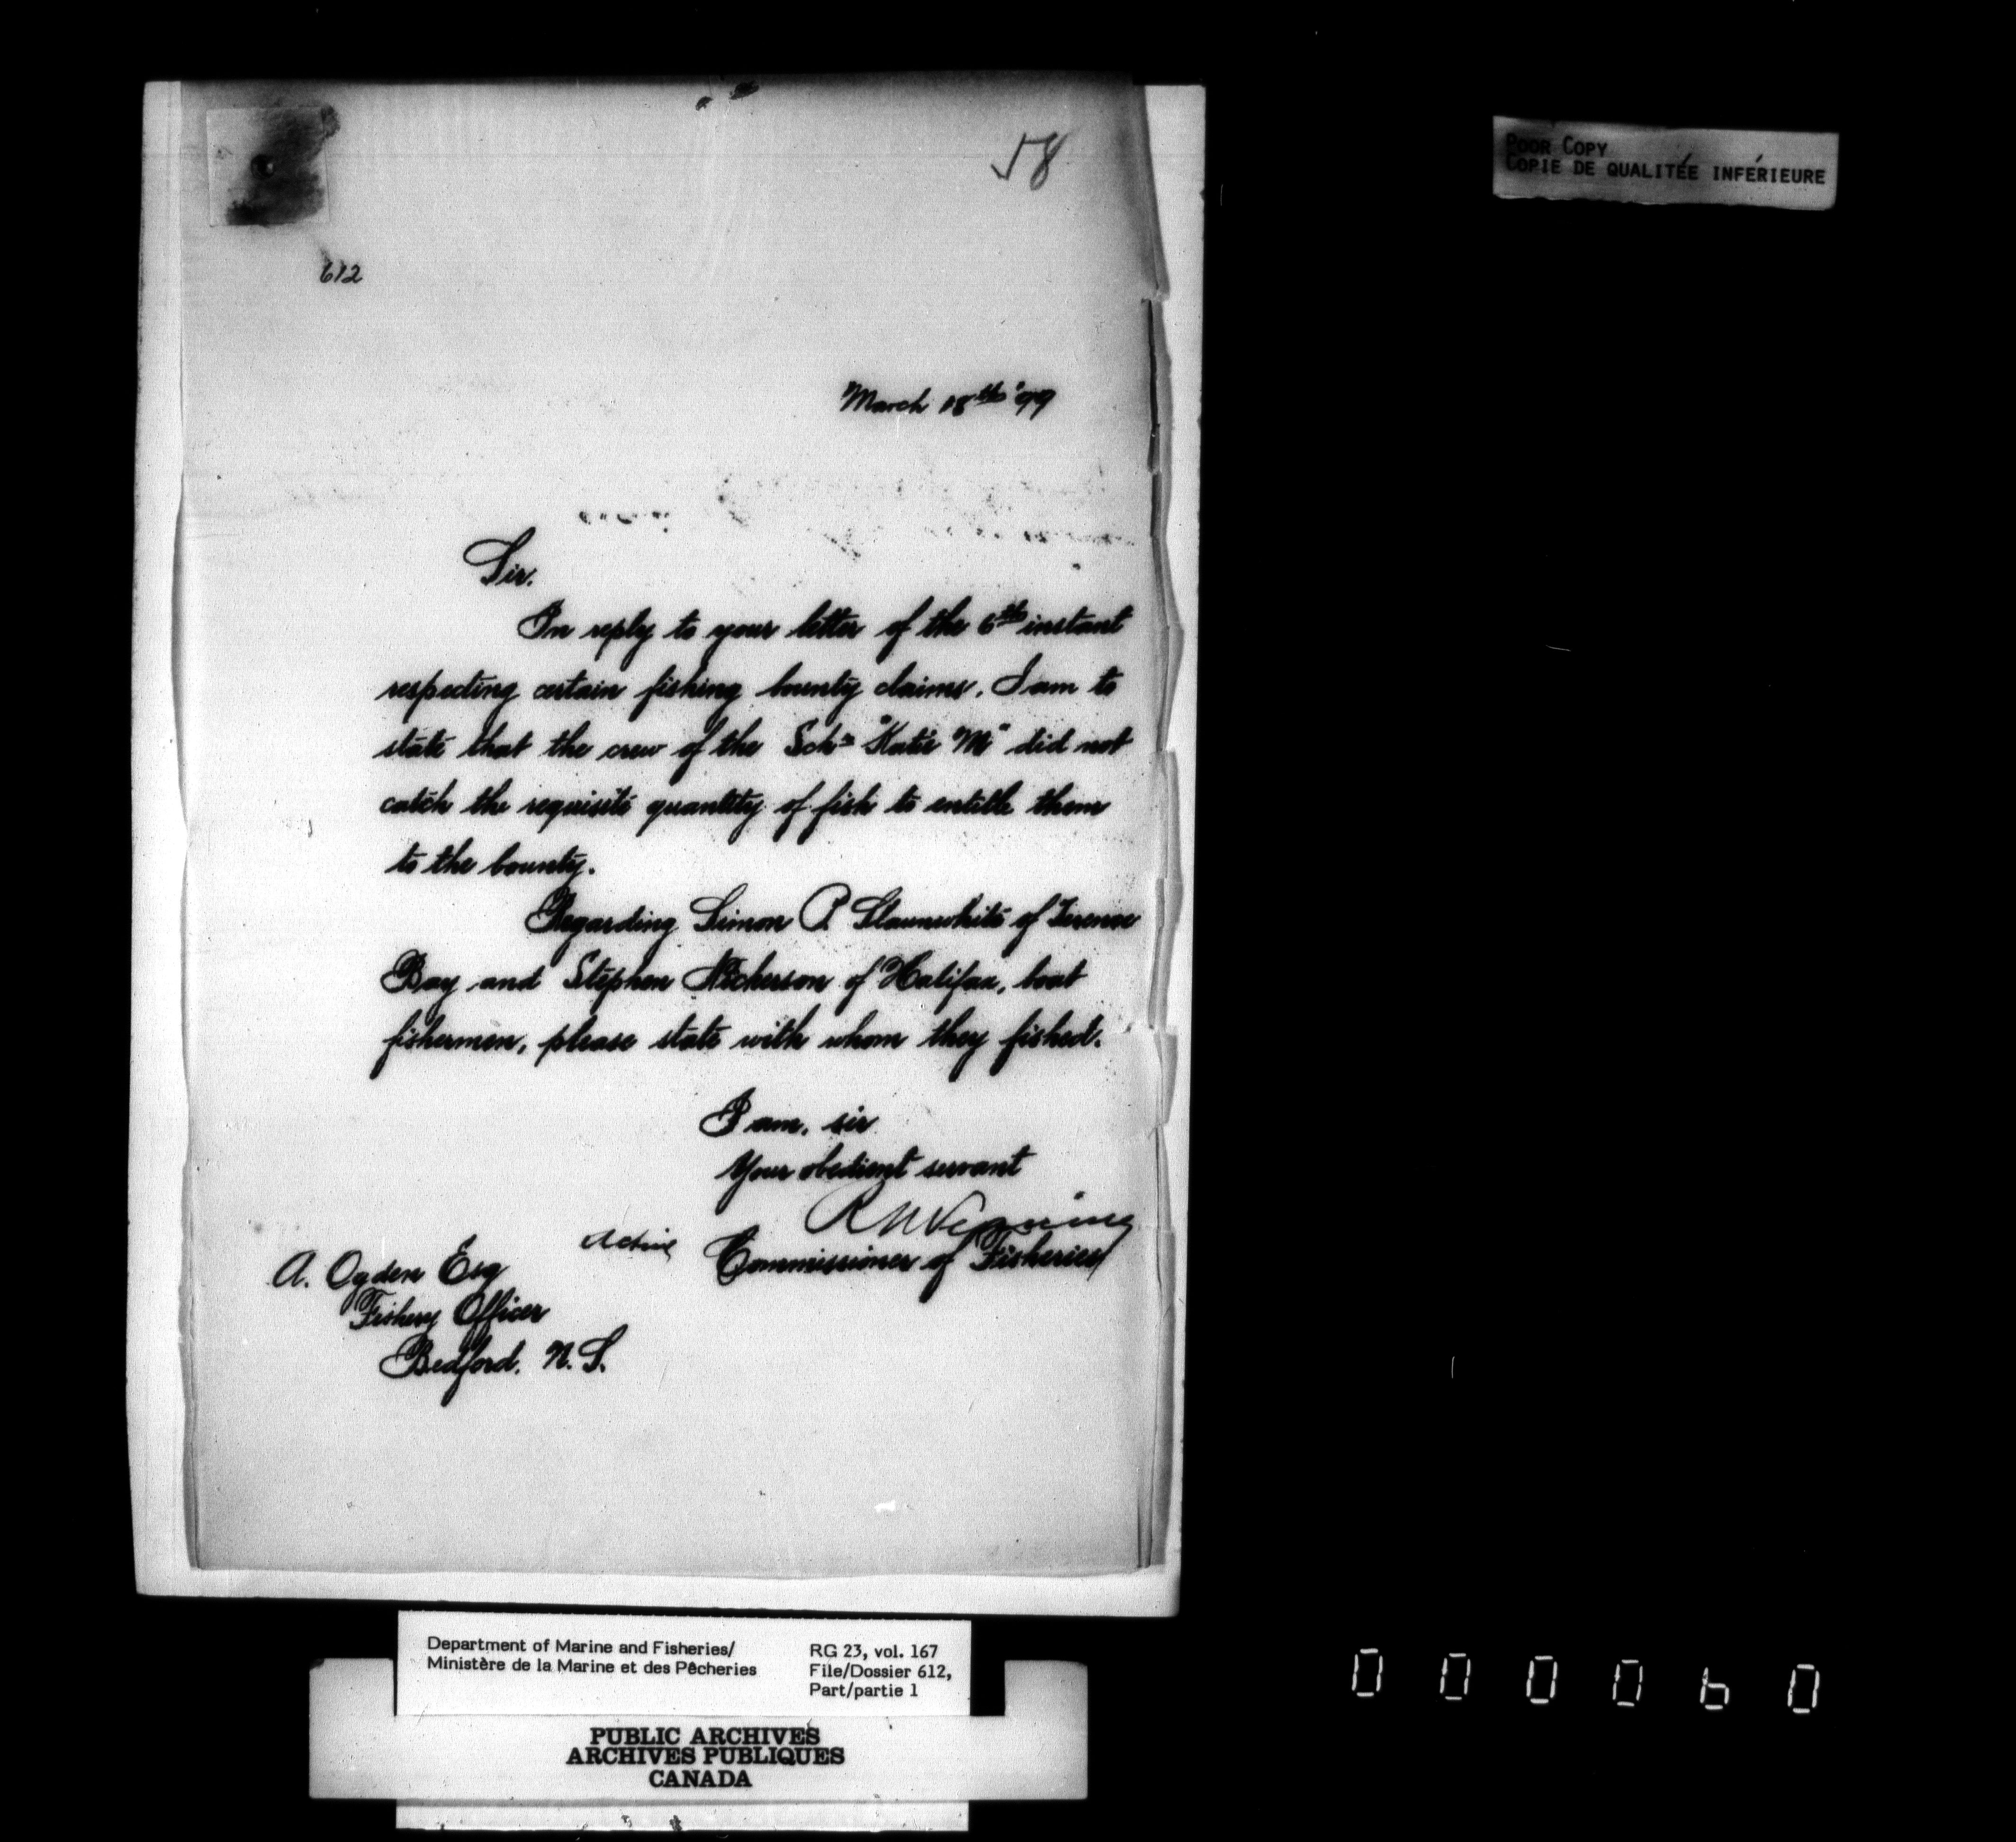 58
POOR COPY
COPIE DE QUALITÉE INFÉRIEURE
612
March 18th '99
Sir.
In reply to your letter of the 6th instant
respecting certain fishing bounty claims. I am to
state that the crew of the Schr "Katie M" did not
catch the requisite quantity of fish to entitle them
to the bounty.
Regarding Simon P. Slaunwhite of Terence
Bay and Stephen Nickerson of Halifax, boat
fishermen, please state with whom they fished.
I am, sir
Your obedient servant
R N Venning
Acting Commissioner of Fisheries
A. Ogden Esq
Fishery Officer
Bedford. N.S.
Department of Marine and Fisheries/
Ministère de la Marine et des Pêcheries
RG 23, vol. 167
File/Dossier 612,
Part/partie 1
PUBLIC ARCHIVES
ARCHIVES PUBLIQUES
CANADA
000060